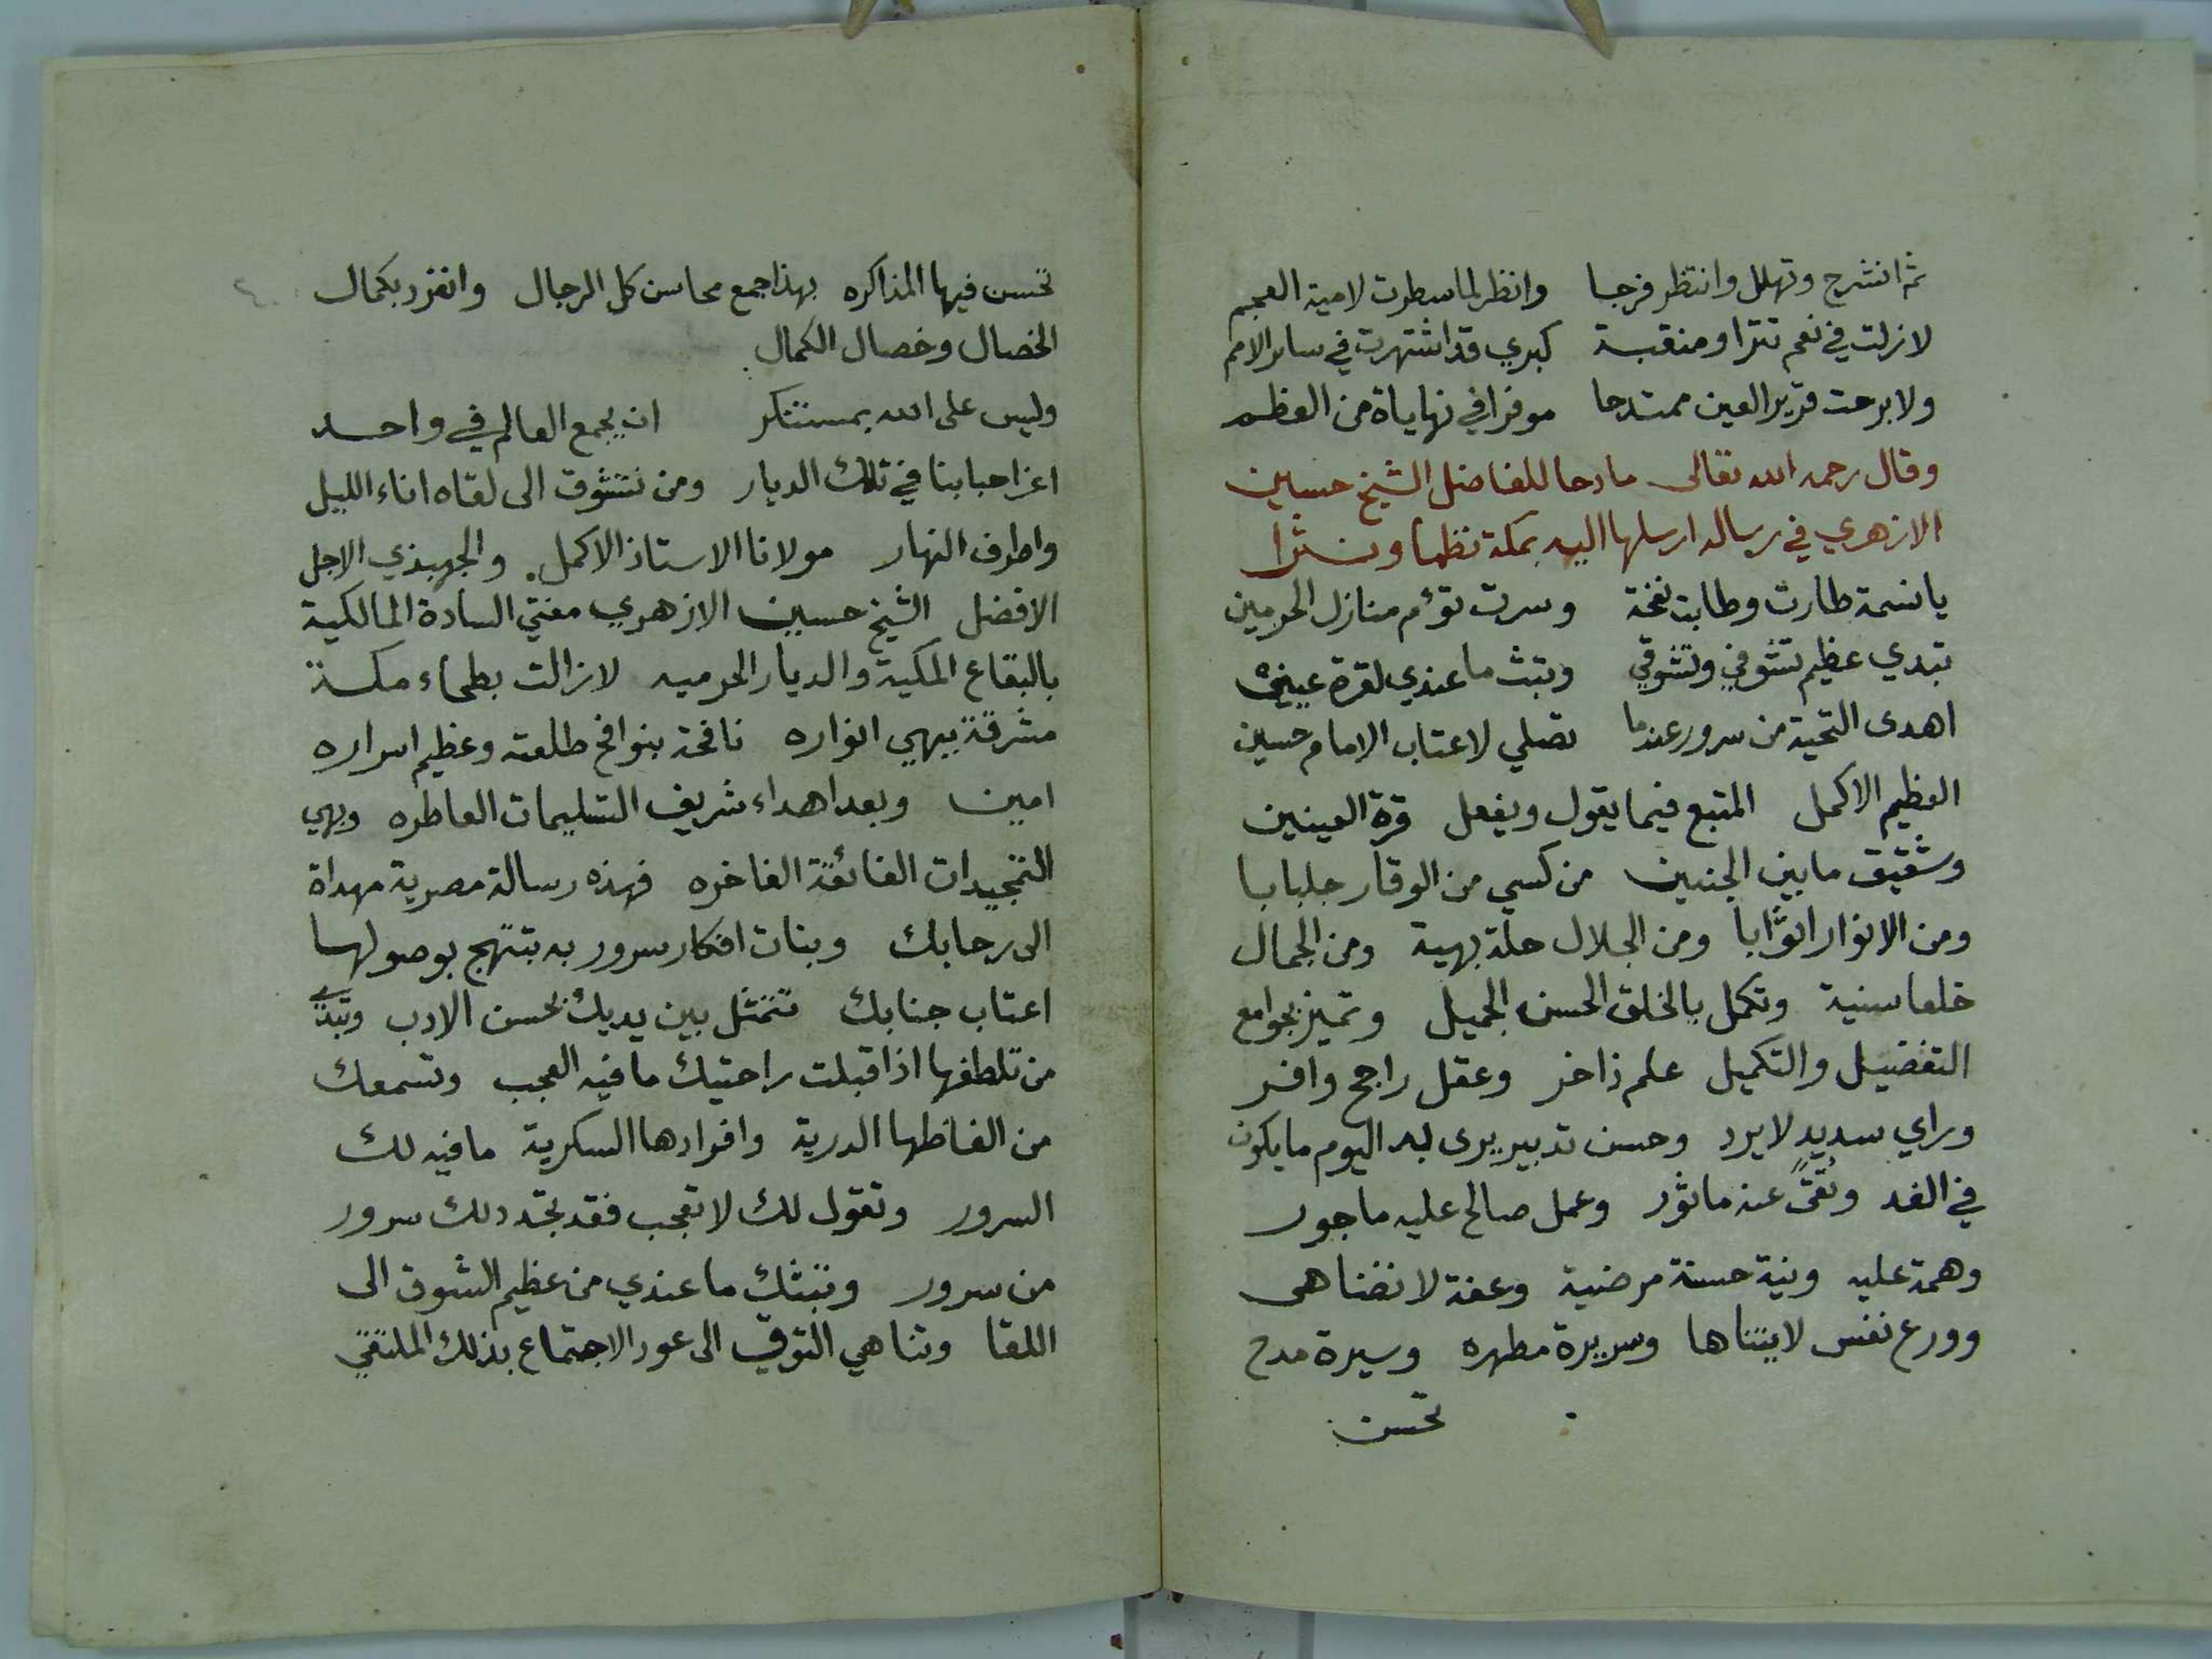 ثم انشرح وتهلل وانتظر فرجا وانظر لما سطرت لامية العجم
لازلت في نعم تترا ومنقبة كبري قد اشتهرت في سائر الامم
ولا برحت قرير العين ممتدحا موفرا في نهاياة من العظم
وقال رحمه الله تعالى مادحا للفاضل الشيخ حسين
الازهري في رساله ارسلها اليه بمكة نظما ونثرا
يا نسمة طارت وطابت نفحة وسرت تؤم منازل الحرمين
تبدي عظيم تشوفي وتشوقي وتبث ما عندي لقرة عيني
اهدى التحية من سرور عندما تصلي لاعتاب الامام حسين
العظيم الاكمل المتبع فيما يقول ويفعل قرة العينين
وشقيق ما بين الجنبين من كسي من الوقار جلبابا
ومن الانوار اثوابا ومن الجلال حلة بهية ومن الجمال
خلعا سنية وتكمل بالخلق الحسن الجميل وتميز بجوامع
التفضيل والتكميل علم ذاخر وعقل راجح وافر
وراي سديد لا يرد وحسن تدبير يرى به اليوم ما يكون
في الغد وتقىً عنه ماثور وعمل صالح عليه ماجور
وهمة عليه ونية حسنة مرضية وعفة لا تضاهى
وورع نفس لا يتناها وسريرة مطهره وسيرة مدح
تحسن
تحسن فيها المذاكره بهذا جمع محاسن كل الرجال وانفرد بكمال
الخصال وخصال الكمال
وليس على الله بمستنكر ان يجمع العالم في واحد
اعز احبابنا في تلك الديار ومن نتشوق الى لقاه اناء الليل
واطرف النهار مولانا الاستاذ الاكمل. والجهبذي الاجل
الافضل الشيخ حسين الازهري مفتي السادة المالكية
بالبقاع المكية والديار الحرميه لازالت بطحاء مكة
مشرقة ببهي انواره نافحة بنوافح طلعته وعظيم اسراره
امين وبعد اهداء شريف التسليمات العاطره وبهي
التمجيدات الفائقة الفاخره فهذه رسالة مصرية مهداة
الى رحابك وبنات افكار سرور به تبتهج بوصولها
اعتاب جنابك تتمثل بين يديك بحسن الادب وتبدي
من تلطفها اذا قبلت راحتيك ما فيه العجب وتسمعك
من الفاظها الدرية وافرادها السكرية ما فيه لك
السرور وتقول لك لا تعجب فقد تجدد لك سرور
من سرور وتبثك ما عندي من عظيم الشوق الى
اللقا وتناهي التوق الى عود الاجتماع بذلك الملتقي